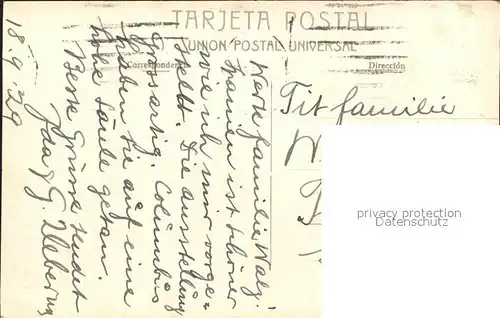 TARJETA POSTAL
UNION POSTAL UNIVERSAL
Correspondencia
Dirección
18.9.29
Werte Familie Walz!
Spanien ist schöner
wie ich mir vorge=
stellt. Die Ausstellung
Grossartig. Columbus
haben sie auf eine
hohe Säule getan.
Beste Grüsse sendet
Ida & G.
Tit familie
W
privacy protection
Datenschutz